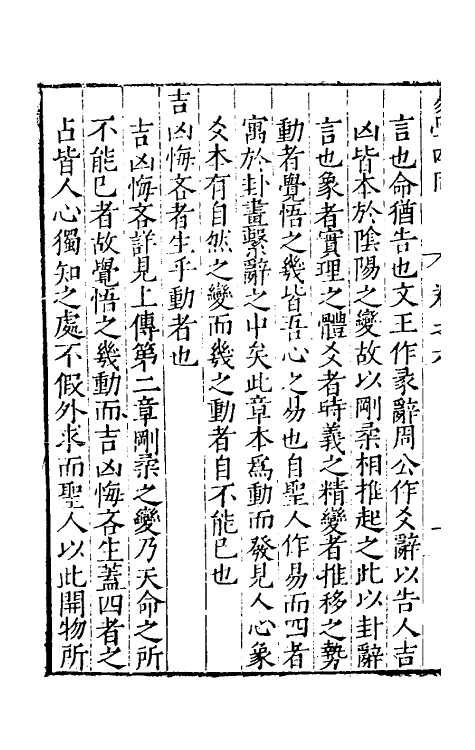 言也命猶告也文王作彖辭周公作爻辭以告人吉
凶皆本於陰陽之變故以剛柔相推起之此以卦辭
言也象者實理之體爻者時義之精變者推移之勢
動者覺悟之幾皆吾心之易也自聖人作易而四者
寓於卦畫繫辭之中矣此章本爲動而發見人心象
爻本有自然之變而幾之動者自不能已也
吉凶悔吝者生乎動者也
吉凶悔吝詳見上傳第二章剛柔之變乃天命之所
不能已者故覺悟之幾動而吉凶悔吝生蓋四者之
占皆人心獨知之處不假外求而聖人以此開物所